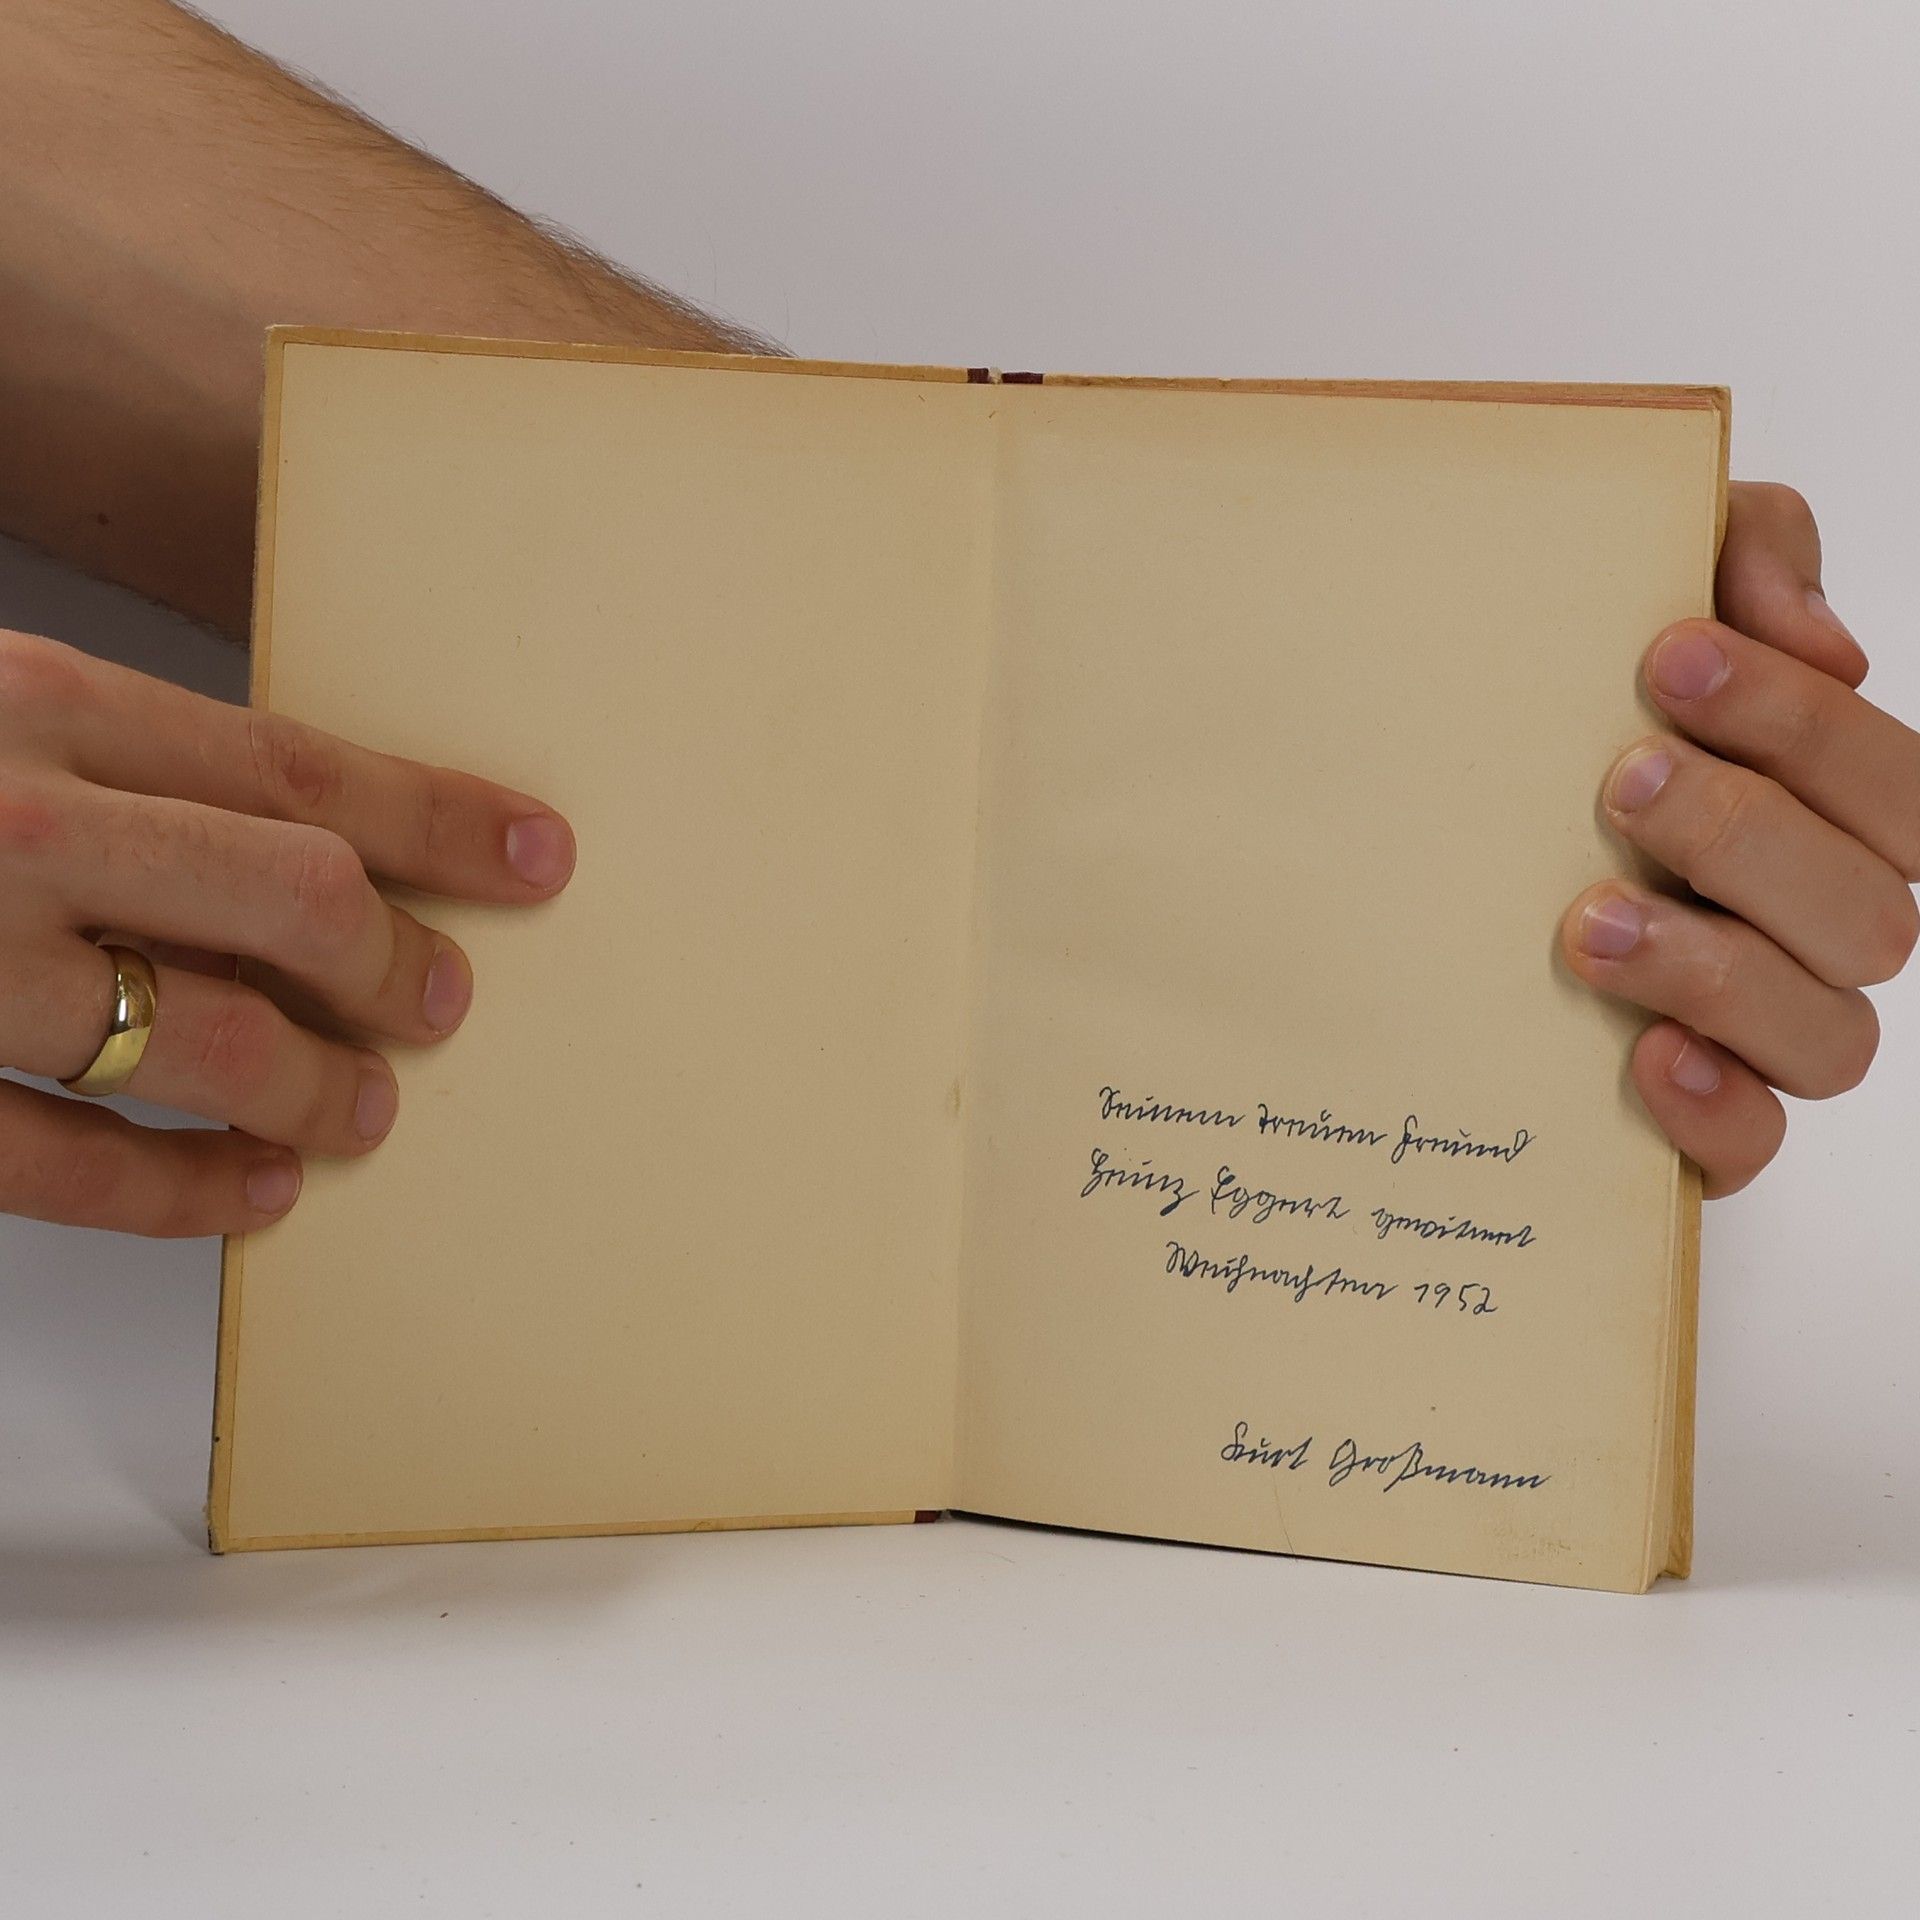 Seinem treuen Freund
Heinz Eggert gewidmet
Weihnachten 1952
Kurt Großmann